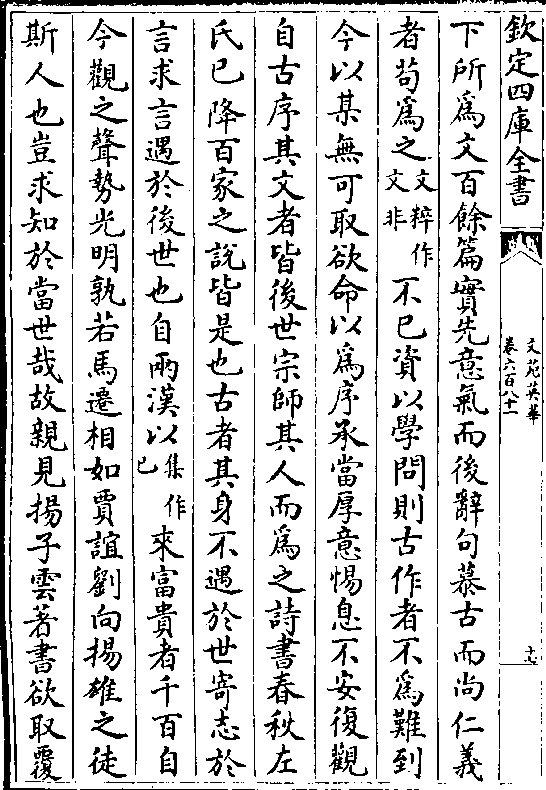 欽定四庫全書
文苑英華
卷六百八十一
十七
下所為文百餘篇實先意氣而後辭句慕古而尚仁義
者苟為之文粹作文非不已資以學問則古作者不為難到
今以某無可取欲命以為序承當厚意惕息不安復觀
自古序其文者皆後世宗師其人而為之詩書春秋左
氏已降百家之說皆是也古者其身不遇於世寄志於
言求言遇於後世也自兩漢以集作已來富貴者千百自
今觀之聲勢光明孰若馬遷相如賈誼劉向揚雄之徒
斯人也豈求知於當世哉故親見揚子雲著書欲取覆